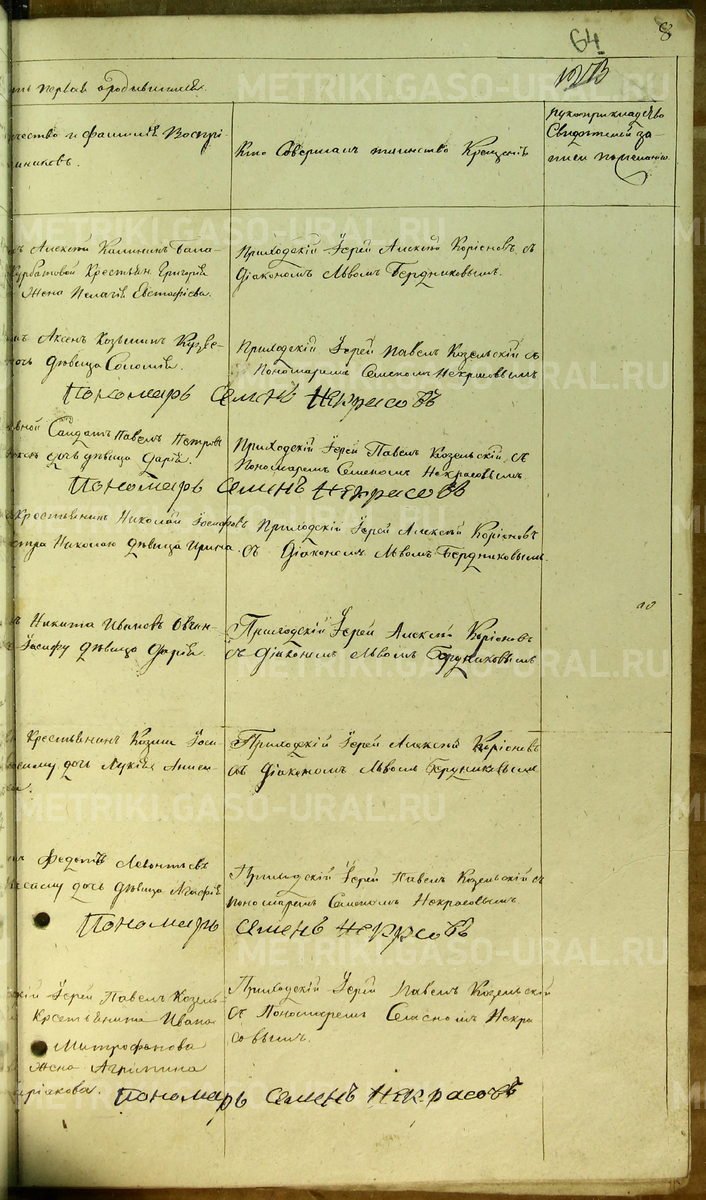 64
8
METRIKI.GASO-URAL.RU
ть первая о родившихся.
чество и фамилія Воспрі-
иниковъ.
Кто Совершалъ таинство Крещенія
рукоприкладство
Свидѣтелей за-
писи по желанію
Алексѣй Калининъ
Курбатовой Крестьян. Григорія
Жена Пелагія Евстафіева.
Приходскій Іерей Алексѣй Коріоновъ съ
Діакономъ Львомъ Бердниковымъ.
Аксенъ Козьминъ
дочь дѣвица Соломія.
Приходскій Іерей Павелъ Козельскій съ
Пономаремъ Семеномъ Некрасовымъ
Пономарь Семенъ Некрасовъ
вной Солдатъ Павелъ Петровъ
дочь дѣвица Дарія.
Приходскій Іерей Павелъ Козельскій съ
Пономаремъ Семеномъ Некрасовымъ
Пономарь Семенъ Некрасовъ
Крестьянинъ Николай Іосифовъ
стра Николаю дѣвица Ирина.
Приходскій Іерей Алексѣй Коріоновъ
съ Діакономъ Львомъ Бердниковымъ.
Никита Ивановъ Овчин-
Іосифу дѣвица Дарія.
Приходскій Іерей Алексѣй Коріоновъ
съ Діакономъ Львомъ Бердниковымъ
Крестьянинъ Козма
дочь Лукія
Приходскій Іерей Алексѣй Коріоновъ
съ Діакономъ Львомъ Бердниковымъ
Федотъ Леонтьевъ
дочь дѣвица Агафія
Приходскій Іерей Павелъ Козельскій съ
пономаремъ Семеномъ Некрасовымъ
Пономарь Семенъ Некрасовъ
скій Іерей Павелъ Козель-
Крестьянина Ивана
Митрофанова
Жена Агрипина
Приходскій Іерей Павелъ Козельскій
съ Пономаремъ Семеномъ Некра
совымъ.
Пономарь Семенъ Некрасовъ